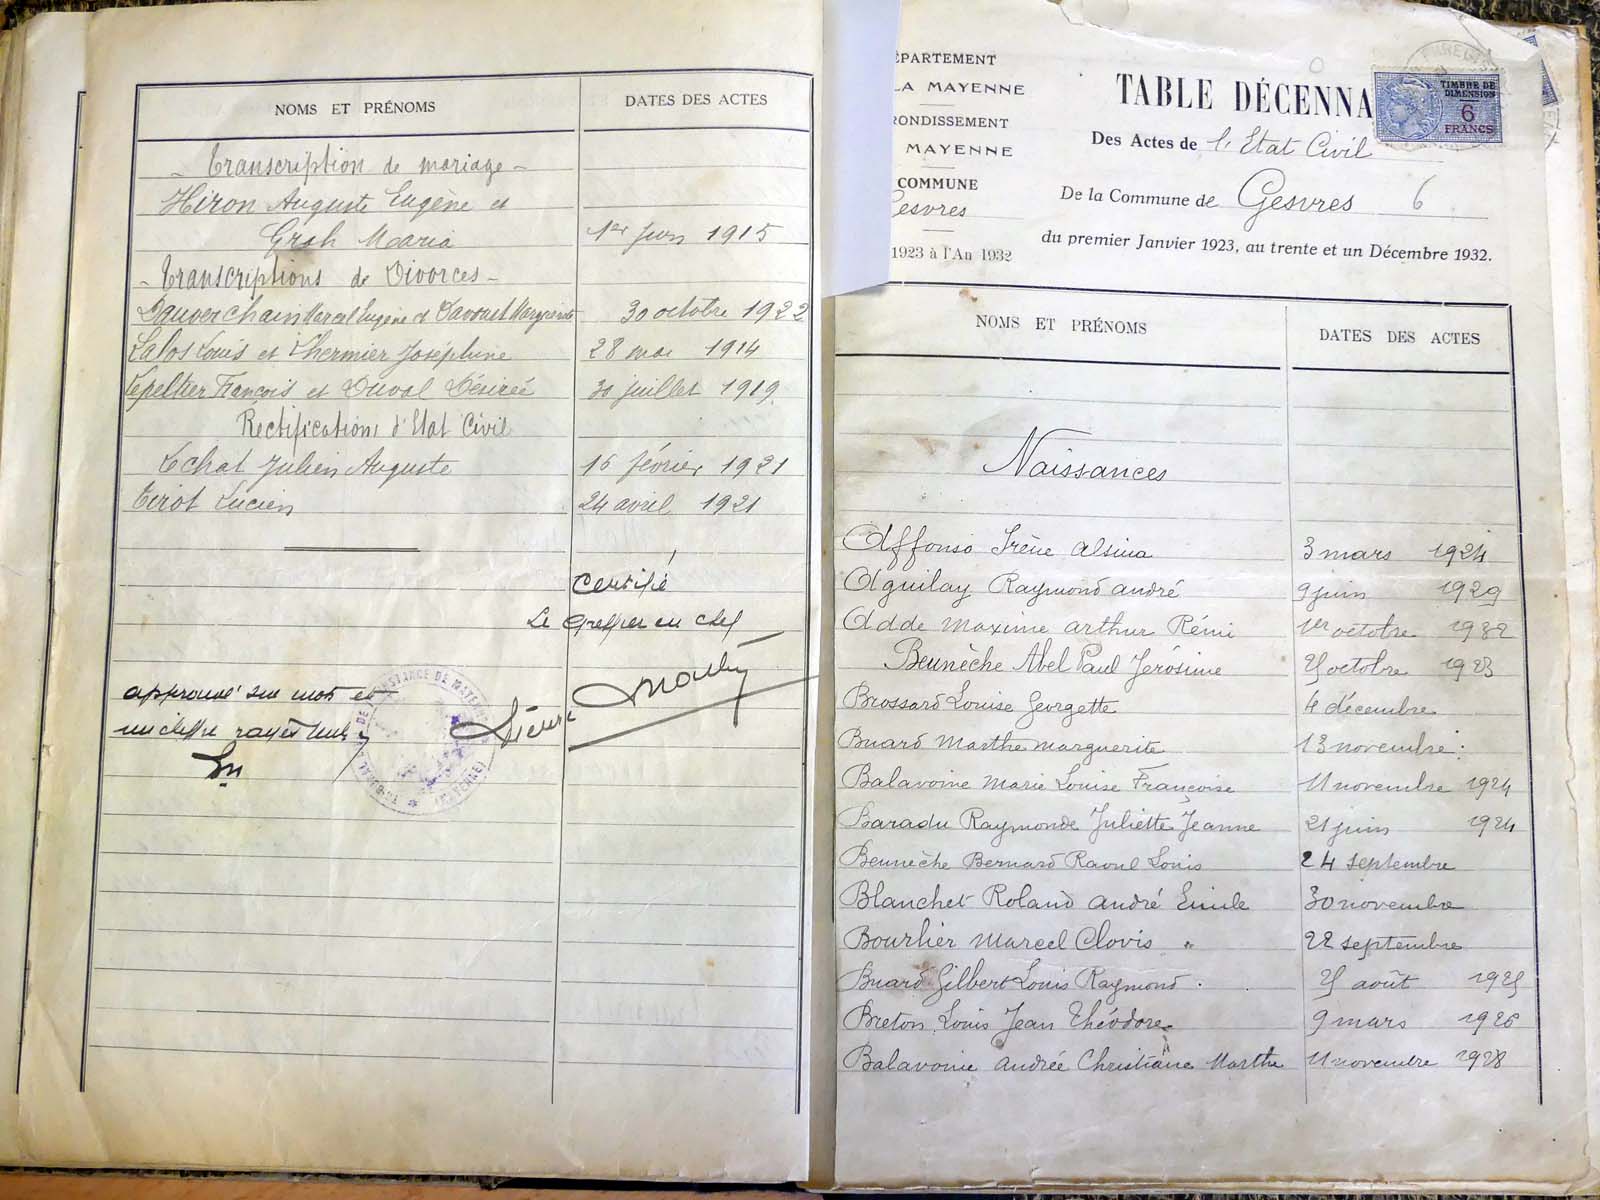 NOMS ET PRÉNOMS
DATES DES ACTES
- Transcription de mariage -
Hiron Auguste Eugène et
Groh Maria 1er juin 1915
- Transcriptions de Divorces -
Dauverchain Marcel Eugène et Davoust Marguerite 30 octobre 1922
Lalos Louis et Lhermier Joséphine 28 mai 1914
Lepeltier François et Duval Désirée 30 juillet 1919
Rectifications d'Etat Civil
Lchat Julien Auguste 16 février 1921
Tirot Lucien 24 avril 1921
certifié
Le Greffier en chef
approuvé un mot et
un chiffre rayés nuls
ÉPARTEMENT
LA MAYENNE
RONDISSEMENT
MAYENNE
COMMUNE
Gesvres
1923 à l'An 1932
TABLE DÉCENNA
TIMBRE DE
DIMENSION
6
FRANCS
Des Actes de l'Etat Civil
De la Commune de Gesvres 6
du premier Janvier 1923, au trente et un Décembre 1932.
NOMS ET PRÉNOMS
DATES DES ACTES
Naissances
Affonso Irène Alsina 3 mars 1924
Aguilay Raymond André 9 juin 1929
Adde Maxime Arthur Rémi 1er octobre 1932
Beunèche Abel Paul Jérôsime 25 octobre 1923
Brossard Louise Georgette 4 décembre
Buard Marthe Marguerite 13 novembre
Balavoine Marie Louise Françoise 11 novembre 1924
Baradu Raymonde Juliette Jeanne 21 juin 1924
Beunèche Bernard Raoul Louis 24 septembre
Blanchet Roland André Emile 30 novembre
Bourlier Marcel Clovis " 22 septembre
Buard Gilbert Louis Raymond 25 août 1925
Breton Louis Jean Théodore 9 mars 1926
Balavoine Andrée Christiane Marthe 11 novembre 1928